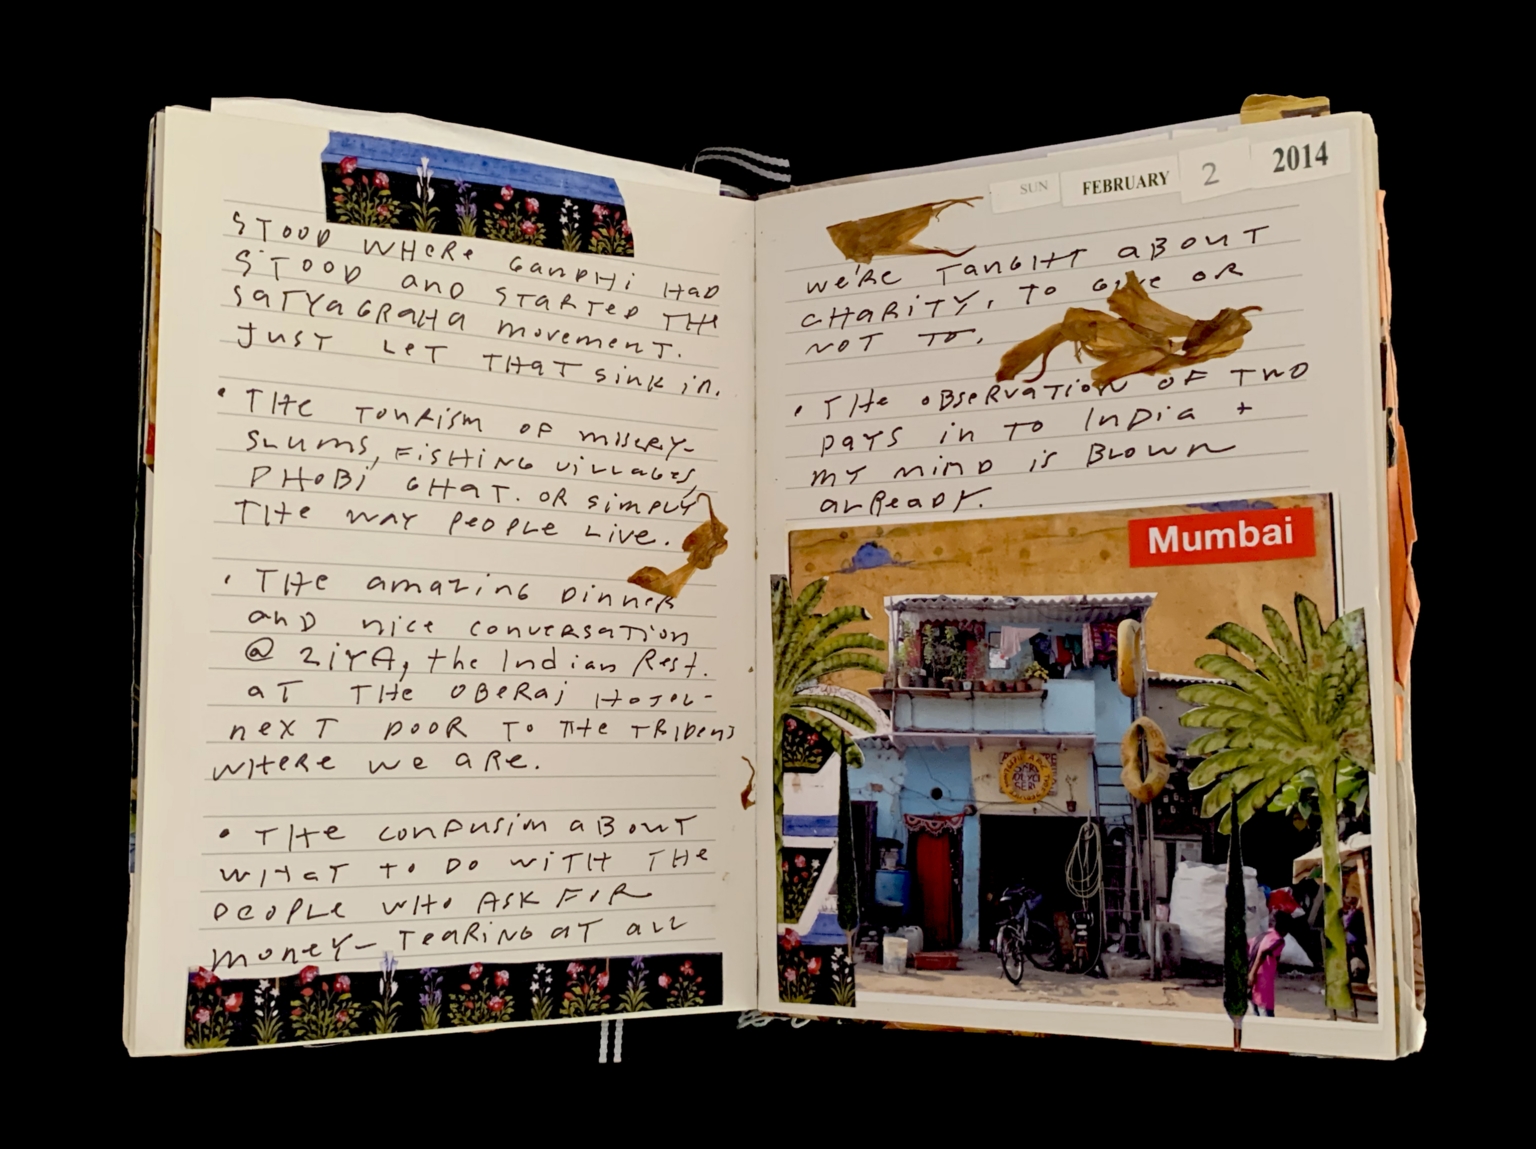 STOOD WHERE GANDHI HAD
STOOD AND STARTED THE
SATYAGRAHA MOVEMENT.
JUST LET THAT SINK IN.
• THE TOURISM OF MISERY-
SLUMS, FISHING VILLAGES,
DHOBI GHAT. OR SIMPLY
THE WAY PEOPLE LIVE.
• THE AMAZING DINNER
AND NICE CONVERSATION
@ ZIYA, the Indian Rest.
AT THE OBERAI HOTEL-
NEXT DOOR TO THE TRIDENT
WHERE WE ARE.
• THE CONFUSION ABOUT
WHAT TO DO WITH THE
PEOPLE WHO ASK FOR
MONEY- TEARING AT ALL
SUN FEBRUARY 2 2014
WE'RE TAUGHT ABOUT
CHARITY, TO GIVE OR
NOT TO.
• THE OBSERVATION OF TWO
DAYS IN TO INDIA +
MY MIND IS BLOWN
ALREADY.
Mumbai